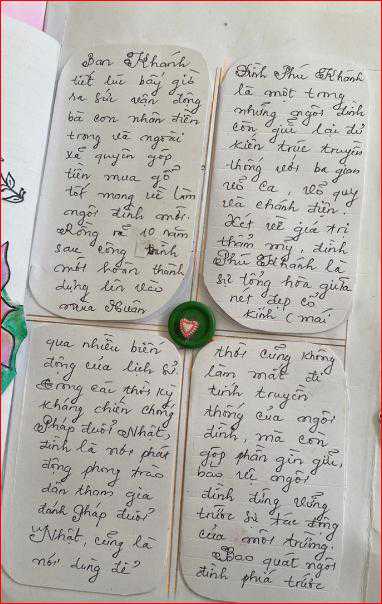 Ban Khánh
tiết lúc bấy giờ
ra sức vận động
bà con nhân dân
trong và ngoài
xã quyên góp
tiền mua gỗ
tốt mang về làm
ngôi đình mới.
Ròng rã 10 năm
sau công trình
mới hoàn thành
dựng lên vào
mùa Xuân
Đình Phú Khánh
là một trong
những ngôi đình
còn giữ lại đủ
kiến trúc truyền
thống với ba gian
võ ca, võ quy
và chánh điện.
Xét về giá trị
thẩm mỹ, đình
Phú Khánh là
sự tổng hòa giữa
nét đẹp cổ
kính (mái
qua nhiều biến
động của lịch sử
trong các thời kỳ
kháng chiến chống
Pháp đuổi Nhật,
đình là nơi phát
động phong trào
dân tham gia
đánh Pháp đuổi
Nhật, cũng là
nơi dùng để
thời cũng không
làm mất đi
tính truyền
thống của ngôi
đình, mà còn
góp phần gìn giữ,
bảo vệ ngôi
đình đứng vững
trước sự tác động
của môi trường.
Bao quát ngôi
đình phía trước